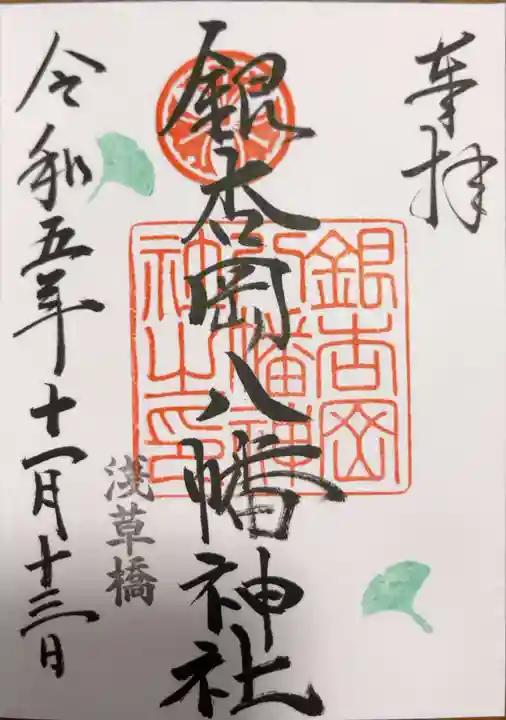 奉拝
銀杏岡八幡神社
銀杏岡
八幡神
社之印
浅草橋
令和五年十一月十三日